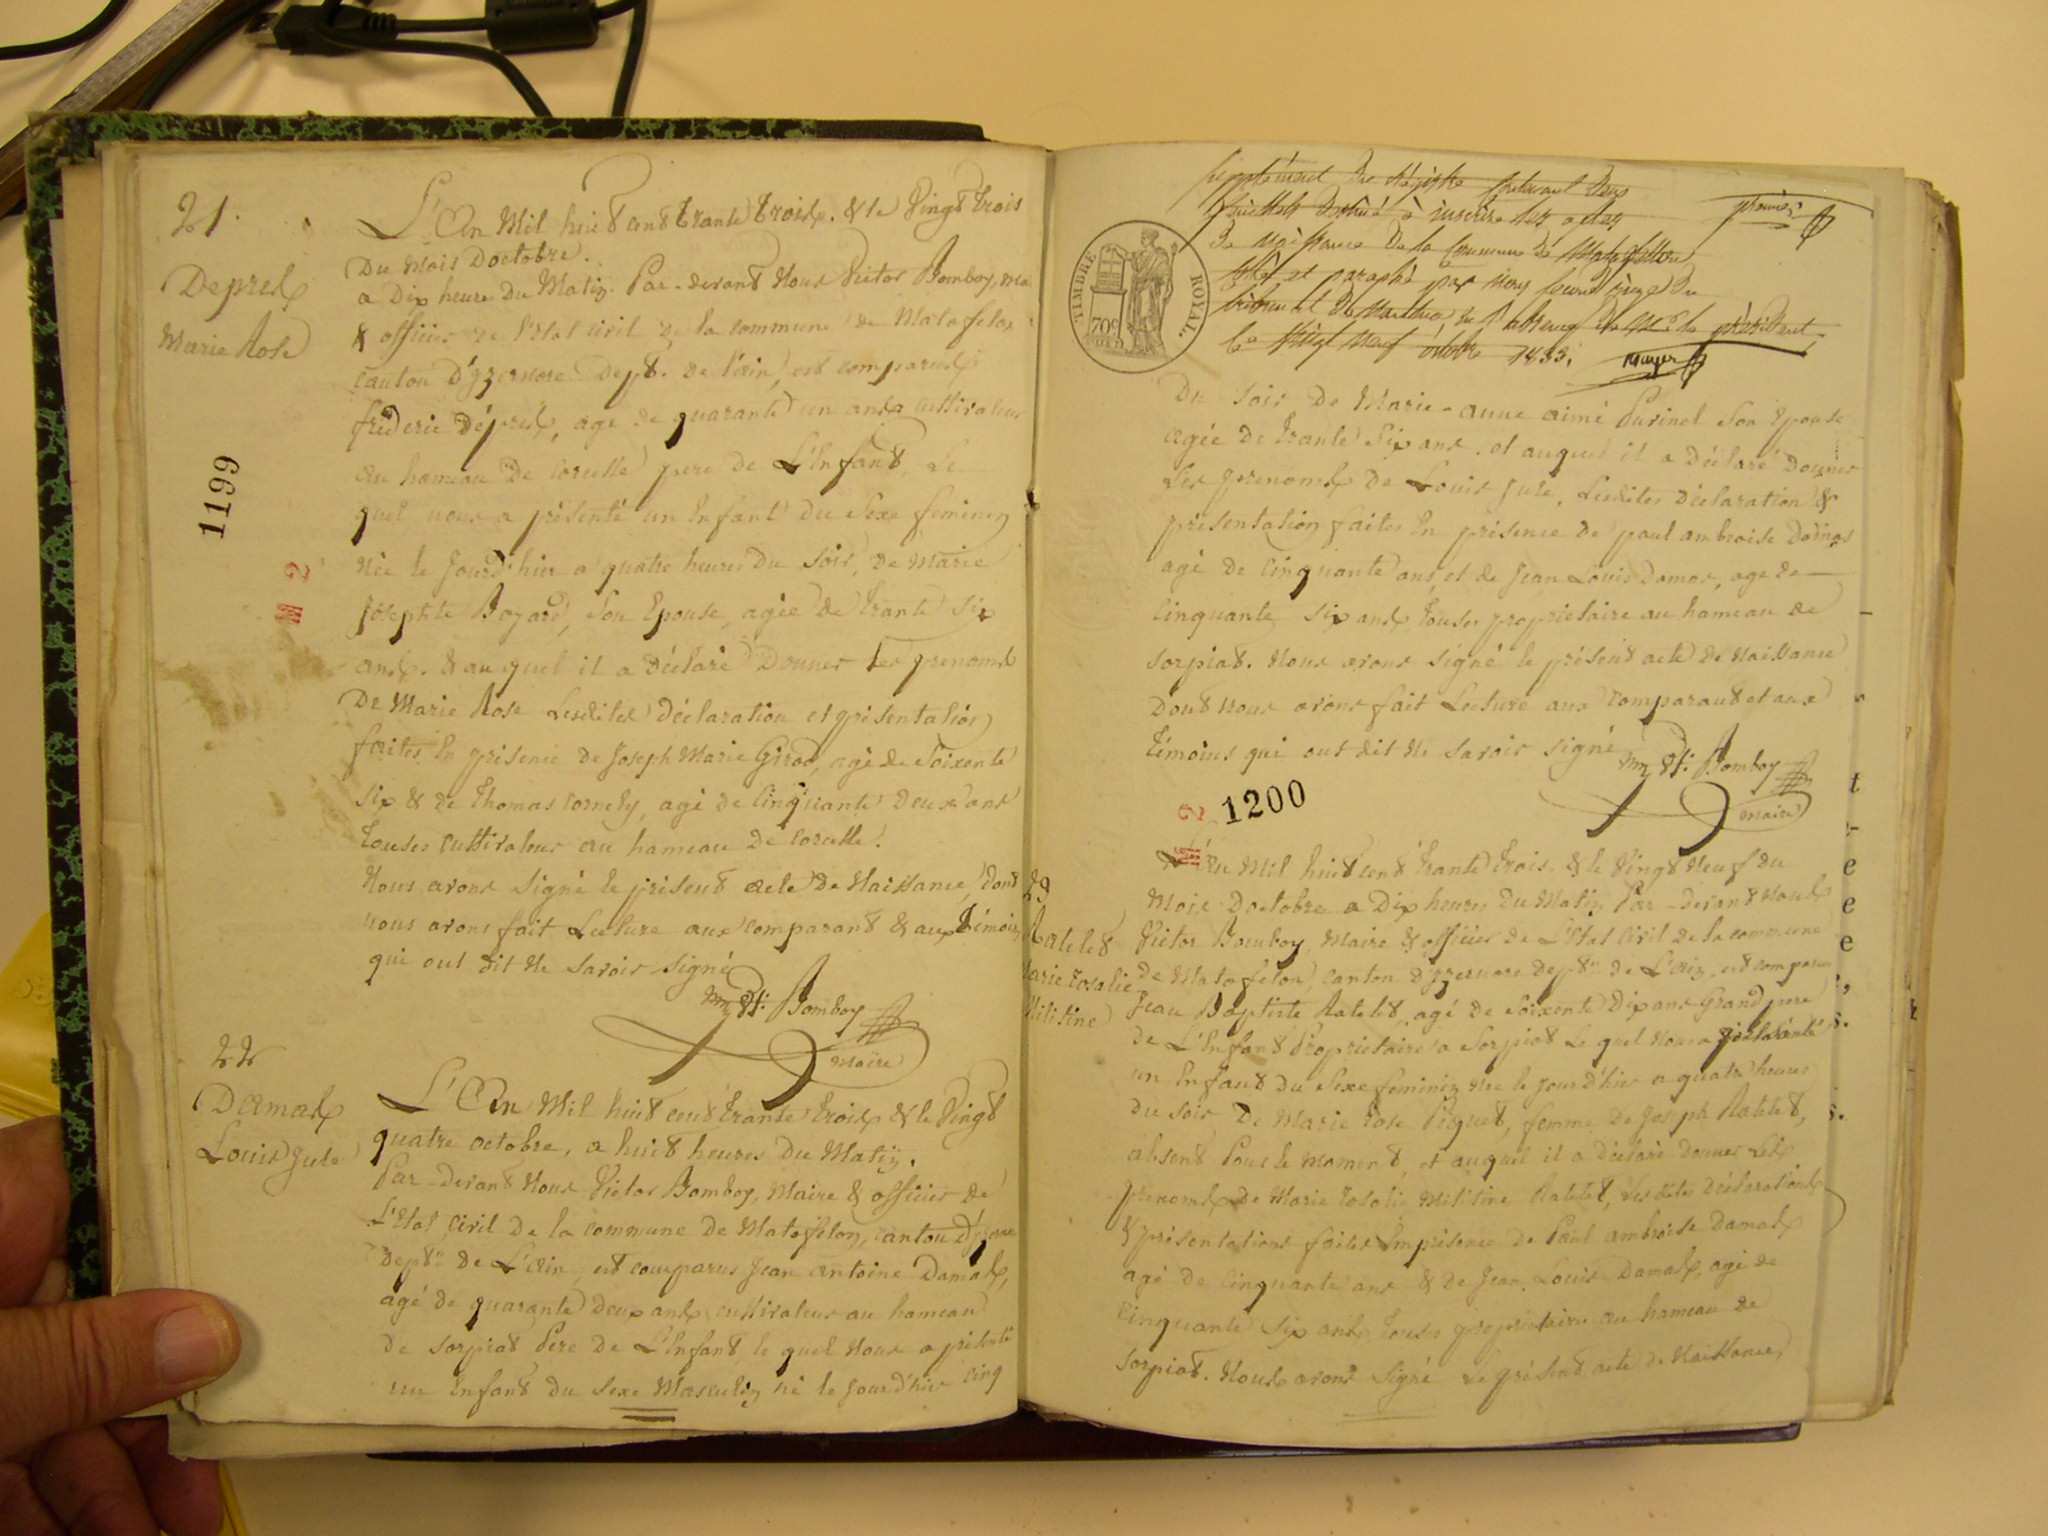 21.
Deprelx
Marie Rose
1199
L'An Mil huit cent trante troix. & le Vingt trois
Du Mois Doctobre.
a Dix heure du Matin. Par-devant Nous Victor Bomboy, ma
& officier de l'Etat civil de la commune de Matafelon
canton d'yzernore Dept. de l'ain, est comparus
frederic Déprelx, age de quarante un anx cultivateur
au hameau De corcelle pere de L'Enfant, Le
quel nous a présenté un Enfant du Sexe feminin
née le Jourd'hier a quatre heures du Soir, De Marie
Josephte Boyard, Son Epouse, agée de trante six
anx. & au quel il a déclaré Donner Les prenomx
De Marie Rose Lesdites déclaration et présentation
faites En présence de Joseph Marie Girod, agé de Soixente
six & de Thomas Cornely, agé de Cinquante Deux ans
touses cultivateur au hameau De corcelle.
Nous avons signé le présent acte De Naissance, dont
nous avons fait Lecture aux comparant & aux témoin
qui ont dit Ne Savoir signé
Bomboy
Maire
22
Damax
Louis Jule
L'An Mil huit cent trante troix & le Vingt
quatre octobre, a huit heures du Matin.
Par-devant Nous Victor Bomboy, Maire & officier de
L'Etat Civil de la commune de Matafelon, canton d'yzerne
dept.n de L'ain, est comparus Jean antoine Damax,
agé de quarante deux anx cultivateur au hameau
de sorpiat Pere de L'Enfant, le quel Nous a présenté
un Enfant du sexe Masculin né le Jourd'hier cinq
Supplément du Régistre contenant deux
feuillets destiné à inscrire les actes
de naissance de la commune de Matafellon
côté et paraphé par nous second juge du
tribunal de Nantua en l'absence de Mr le président
Ce vingt neuf octobre 1833.
premier
Mayer
TIMBRE ROYAL.
70c
Du Soir De Marie-anne aimé Purinel Son Epouse
agée de trante Six ans. et auquel il a Déclaré Donner
Les prenomx De Louis Jule, Lesdites déclaration &
présentation faites En présence de paul ambroise Damas
agé de Cinquante ans, et de Jean Louis Damas, age de
Cinquante six anx, touses proprietaire au hameau de
sorpiat. Nous avons signé le présent acte De Naissance
Dont Nous avons fait Lecture aux Comparant et aux
Témoins qui ont dit Ne Savoir signé
Bomboy
Maire
1200
23
Ratelet
Marie Rosalie
Militine
L'An Mil huit cent trante trois. & le Vingt Neuf du
Mois Doctobre a Dix heures Du Matin Par-devant Nous
Victor Bomboy, Maire & officier de L'Etat Civil de la commune
de Matafelon, canton d'yzernore dept.n de L'ain, est comparus
Jean Baptiste Ratelet, agé de Soixente Dix ans Grand pere
de L'Enfant Proprietaire a Sorpiat Le quel Nous a présenté
un Enfant du Sexe feminin Née le jourd'hier a quatre heures
du soir, De Marie Rose Piquet, femme de Joseph Ratelet,
absent Pour le Moment, et auquel il a Déclaré donner Les
prenomx de Marie Rosalie Militine Ratelet, Lesdites Déclarations
& présentations faites En présence de Paul ambroise Damax
agé de Cinquante ans & de Jean Louis Damax, agé de
Cinquante six anx, touses proprietaire au hameau de
sorpiat. Nous avons signé Le présent acte De Naissance